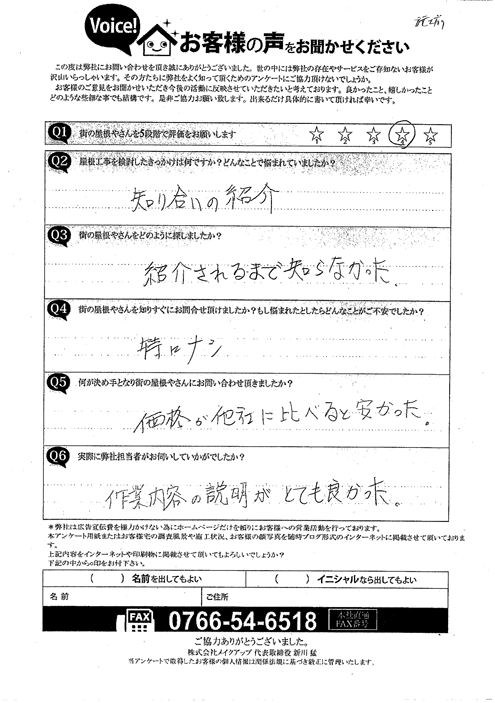 Voice!
お客様の声をお聞かせください
この度は弊社にお問い合わせを頂き誠にありがとうございました。世の中には弊社の存在やサービスをご存知ないお客様が
沢山いらっしゃいます。その方たちに弊社をよく知って頂くためのアンケートにご協力頂けないでしょうか。
お客様のご意見をお聞かせいただき今後の活動に反映させていただきたいと考えております。良かったこと、嬉しかったこと
どのような些細な事でも結構です。是非ご協力お願い致します。出来るだけ具体的に書いて頂ければ幸いです。
Q1 街の屋根やさんを5段階で評価をお願いします
1 2 3 4 5
Q2 屋根工事を検討したきっかけは何ですか？どんなことで悩まれていましたか？
知り合いの紹介
Q3 街の屋根やさんをどのように探しましたか？
紹介されるまで知らなかった。
Q4 街の屋根やさんを知りすぐにお問合せ頂けましたか？もし悩まれたとしたらどんなことがご不安でしたか？
特にナシ
Q5 何が決め手となり街の屋根やさんにお問い合わせ頂きましたか？
価格が他社に比べると安かった。
Q6 実際に弊社担当者がお伺いしていかがでしたか？
作業内容の説明がとても良かった。
＊弊社は広告宣伝費を極力かけない為にホームページだけを頼りにお客様への営業活動を行っております。
本アンケート用紙またはお客様宅の調査風景や施工状況、お客様の顔写真を随時ブログ形式のインターネットに掲載させて頂いておりま
す。
上記内容をインターネットや印刷物に掲載させて頂いてもよろしいでしょうか？
下記の中から○印をお付下さい。
（　）名前を出してもよい （　）イニシャルなら出してもよい
名前 ご住所
FAX 0766-54-6518 本社直通 FAX番号
ご協力ありがとうございました。
株式会社メイクアップ 代表取締役 新川 猛
当アンケートで取得したお客様の個人情報は関係法規に基づき厳正に管理いたします。